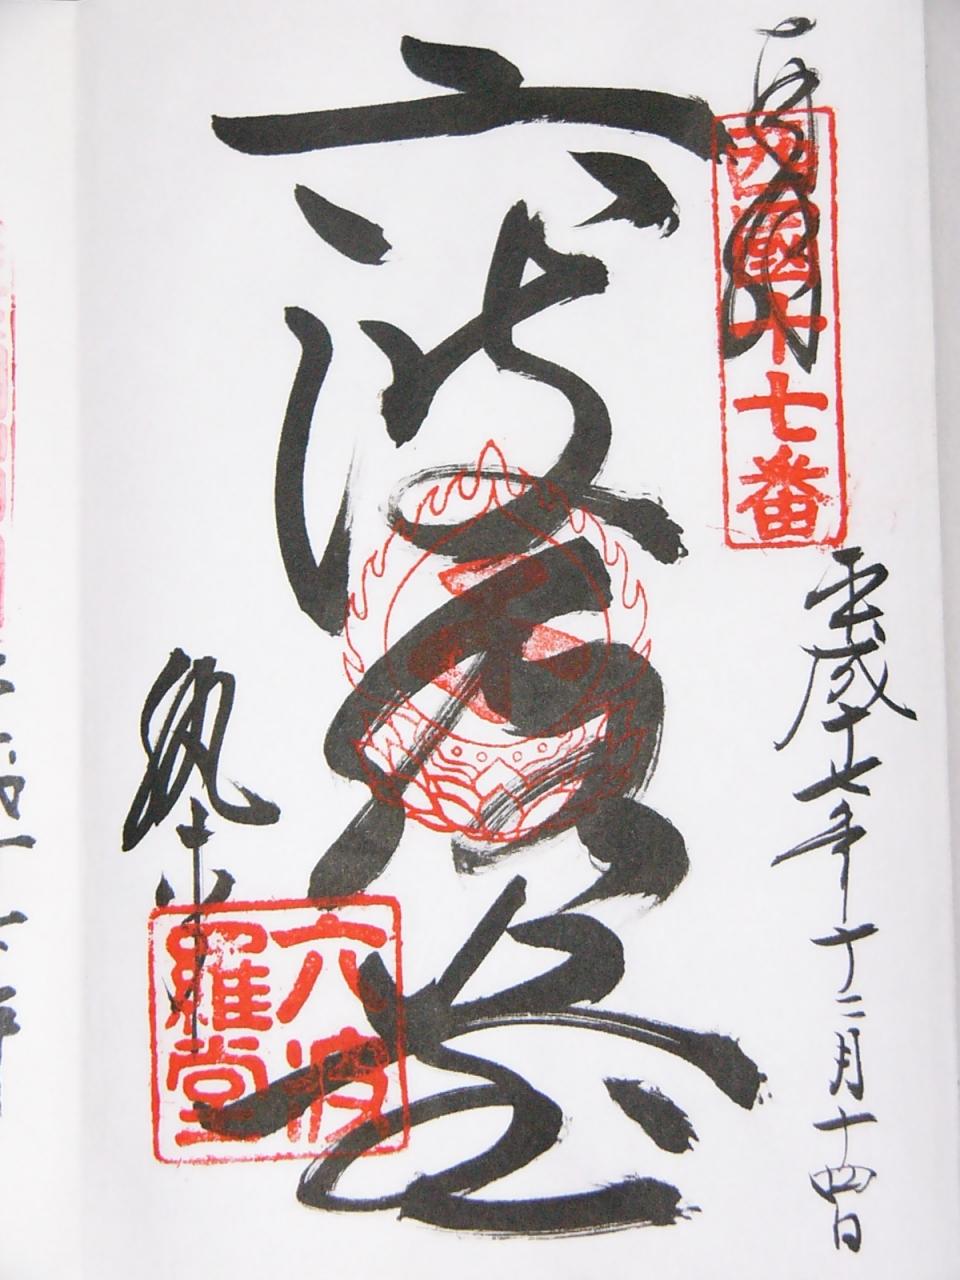 奉拝
西國十七番
平成十七年十二月十四日
六波羅堂
六波
羅堂